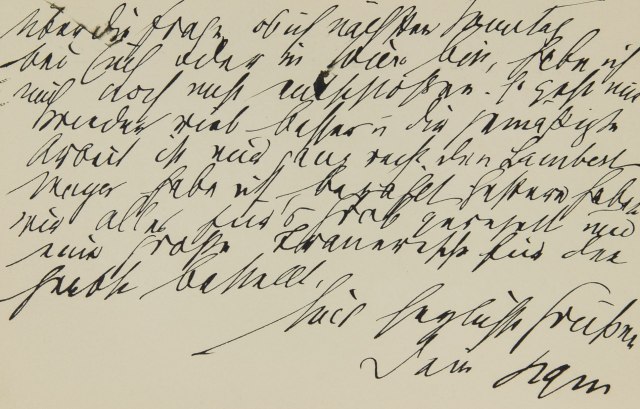 über die Frage, ob ich nächsten Sonntag
bei Euch oder in Wien bin, habe ich
mich noch nicht entschlossen. Es geht mir
wieder viel besser u die gemäßigte
Arbeit ist mir ganz recht. Den Lambert
Mayer habe ich bezahlt. Gestern haben
wir alles für's Grab geregelt und
eine große Trauer für den
Herbst bestellt.
Mit herzlichsten Grüßen
Dein